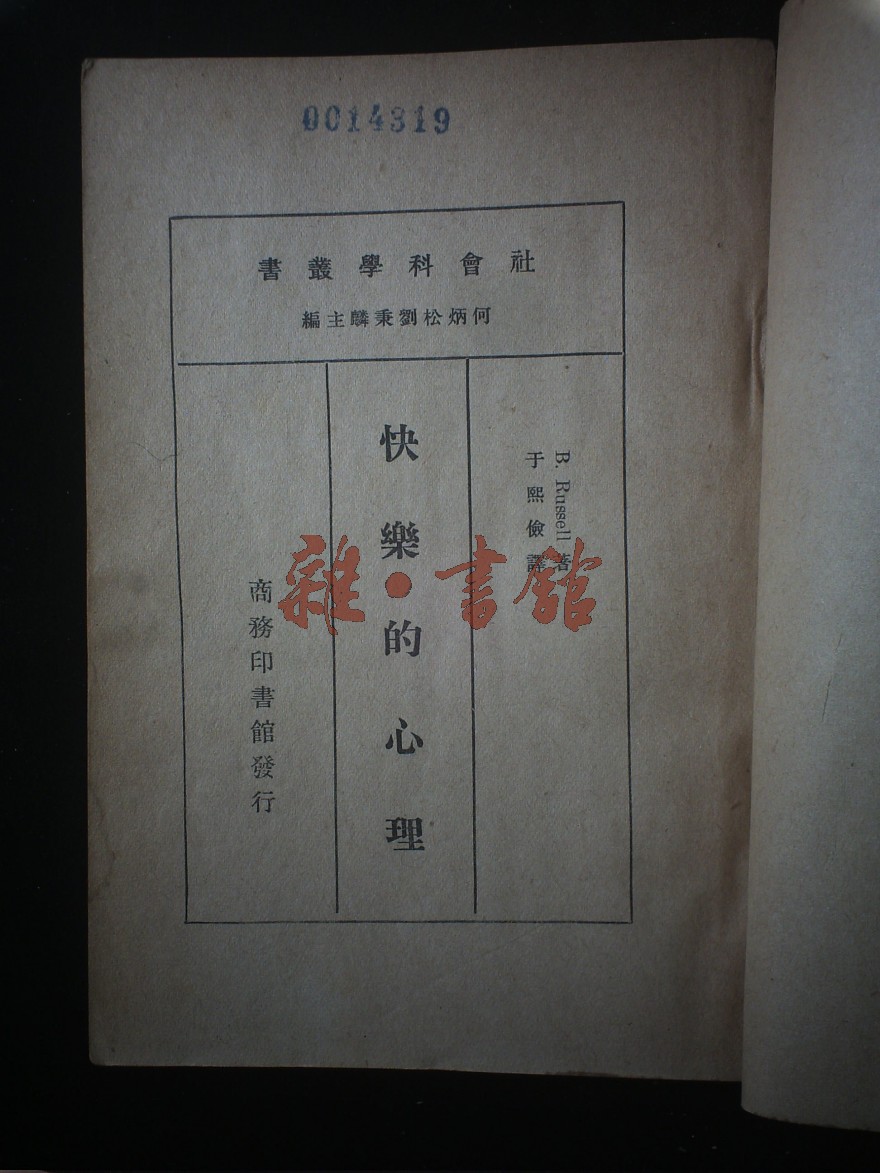 0014319
社會科學叢書
何炳松劉秉麟主編
B. Russell 著
于熙儉譯
快樂的心理
商務印書館發行
雜·書館